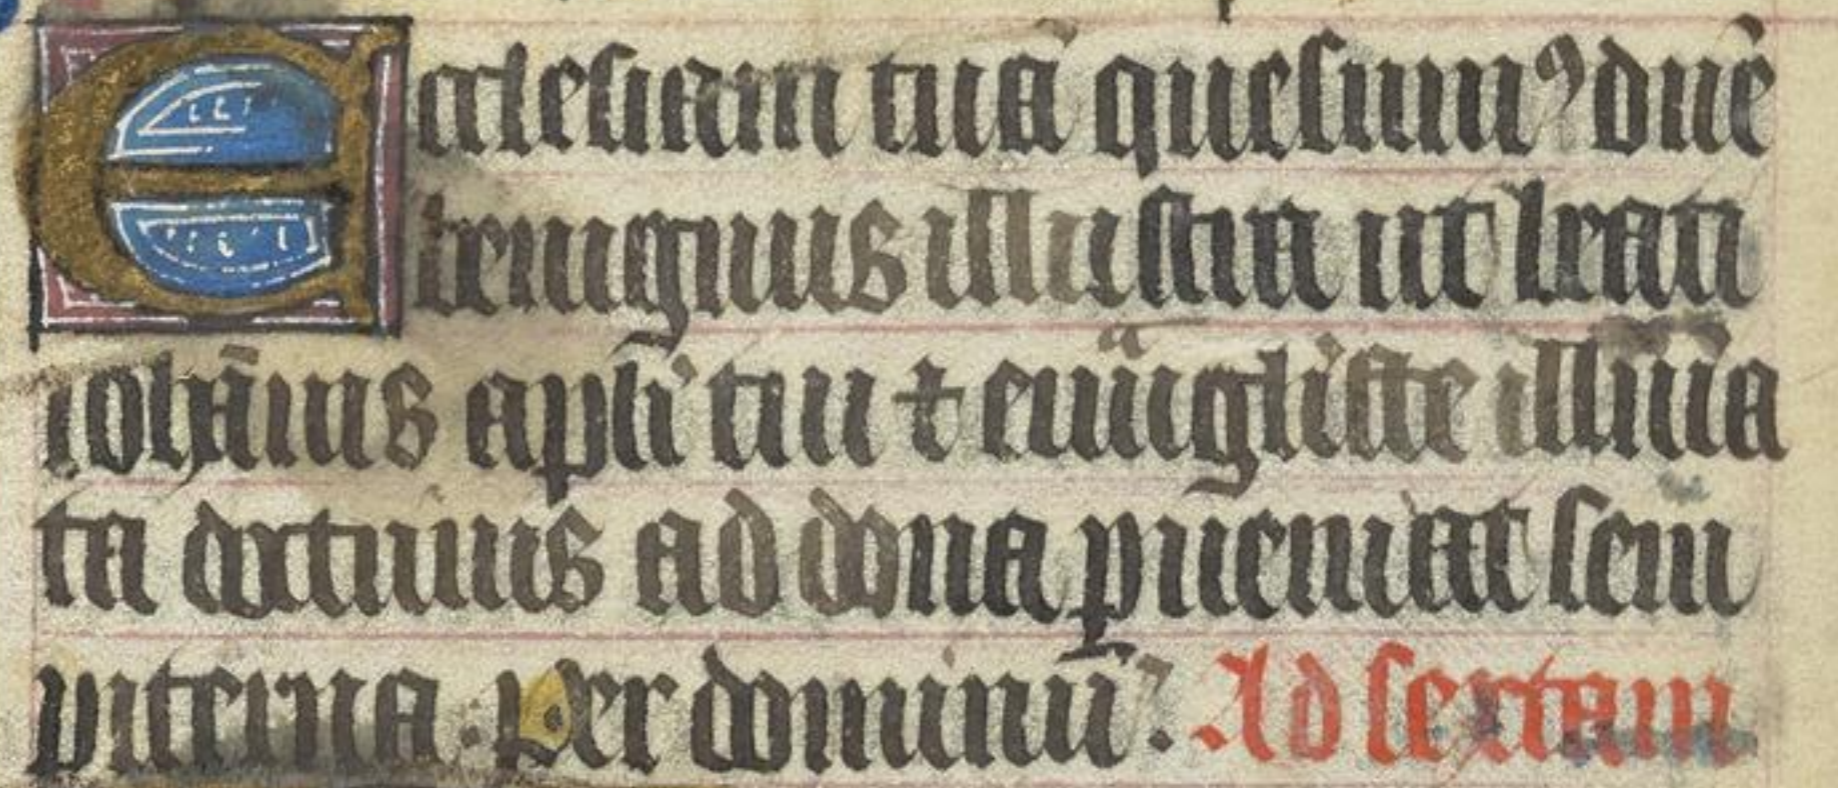 Ecclesiam tuā quesumꝰ dn̄e
benignus illustra ut beati
iohānis apl'i tui ⁊ euāgliste illūīa
ta doctrinis ad dona ꝑueniat sem
piterna. Per dominū. Ad sextam